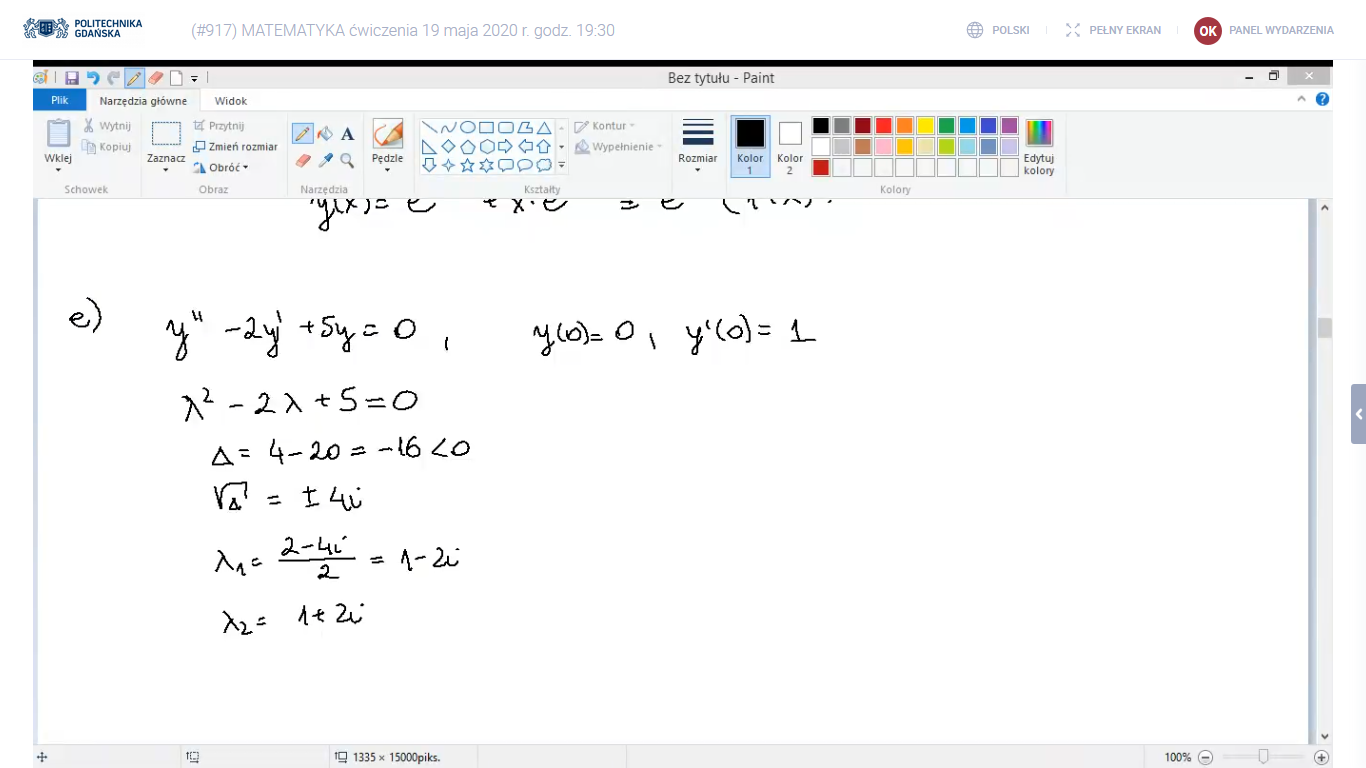 POLITECHNIKA
GDAŃSKA
(#917) MATEMATYKA ćwiczenia 19 maja 2020 r. godz. 19:30
POLSKI
PEŁNY EKRAN
OK
PANEL WYDARZENIA
Bez tytułu - Paint
Plik
Narzędzia główne
Widok
Wklej
Wytnij
Kopiuj
Schowek
Zaznacz
Przytnij
Zmień rozmiar
Obróć
Obraz
A
Narzędzia
Pędzle
Kształty
Kontur
Wypełnienie
Rozmiar
Kolor
1
Kolor
2
Edytuj
kolory
Kolory
e) y'' - 2y' + 5y = 0 , y(0) = 0, y'(0) = 1
λ² - 2λ + 5 = 0
Δ = 4 - 20 = -16 < 0
√Δ = ± 4i
λ₁ = (2 - 4i)/2 = 1 - 2i
λ₂ = 1 + 2i
1335 × 15000piks.
100%